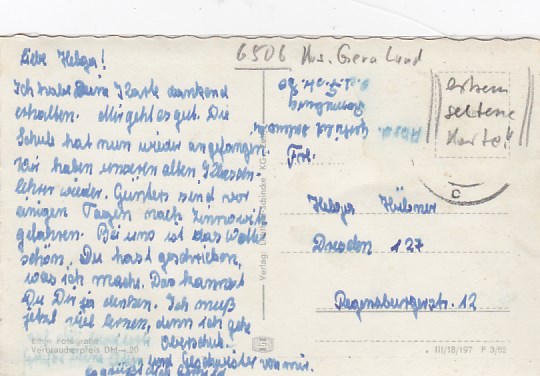 Liebe Helga!
Ich habe Deine Karte dankend
erhalten. Mir geht es gut. Die
Schule hat nun wieder angefangen.
Wir haben unseren alten Klassen-
lehrer wieder. Günters sind vor
einigen Tagen nach Zinnowitz
gefahren. Bei uns ist das Wetter
schön. Du hast geschrieben,
was ich mache. Das kannst
Du Dir ja denken. Ich muß
jetzt viel lernen, denn ich gehe
Oberschul.
und Geschwister von mir.
Echte Fotografie
Verbraucherpreis DM —,20
Verlag:
6506 Krs. Gera Land
Absd.
Ronneburg
Frl.
Helga Hübner
Dresden A27
Regensburgerstr. 12
extrem
seltene
Karte!!
c
III/18/197 P 3/62